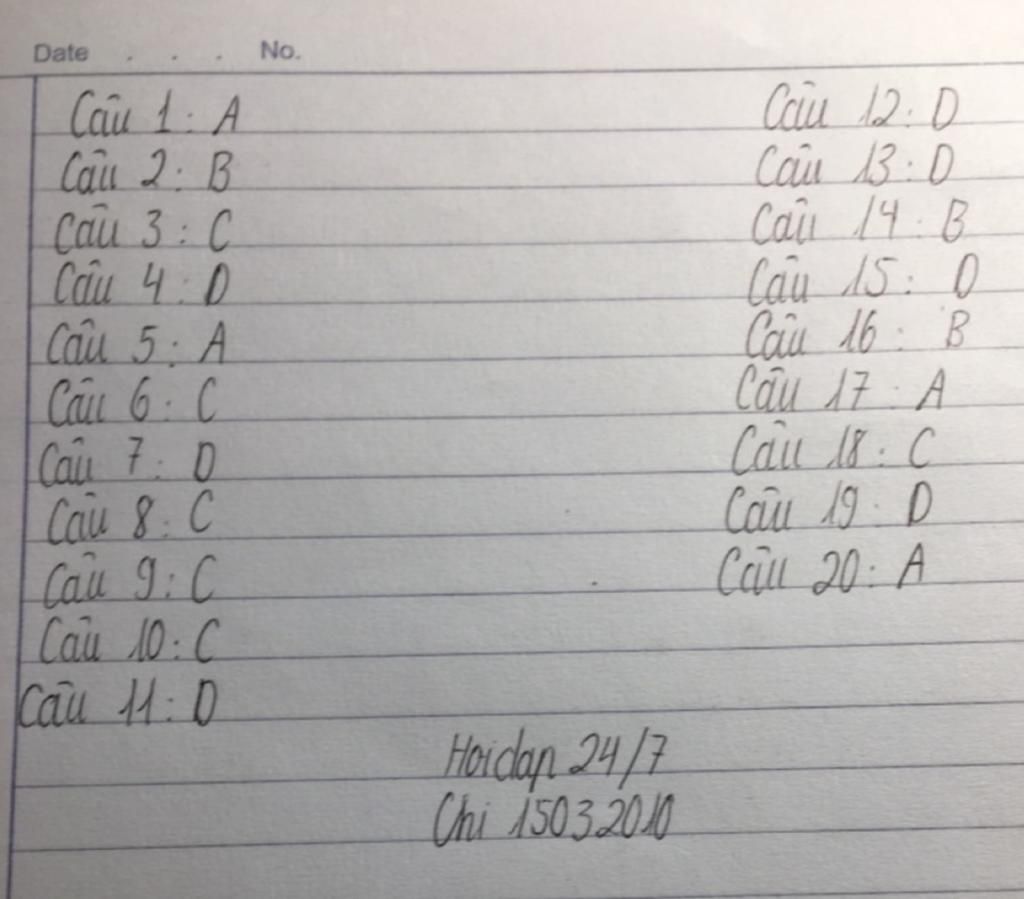 Date . . . No.
Câu 1: A
Câu 2: B
Câu 3: C
Câu 4: D
Câu 5: A
Câu 6: C
Câu 7: D
Câu 8: C
Câu 9: C
Câu 10: C
Câu 11: D
Câu 12: D
Câu 13: D
Câu 14: B
Câu 15: D
Câu 16: B
Câu 17: A
Câu 18: C
Câu 19: D
Câu 20: A
Hoidap 24/7
Chi 15032010